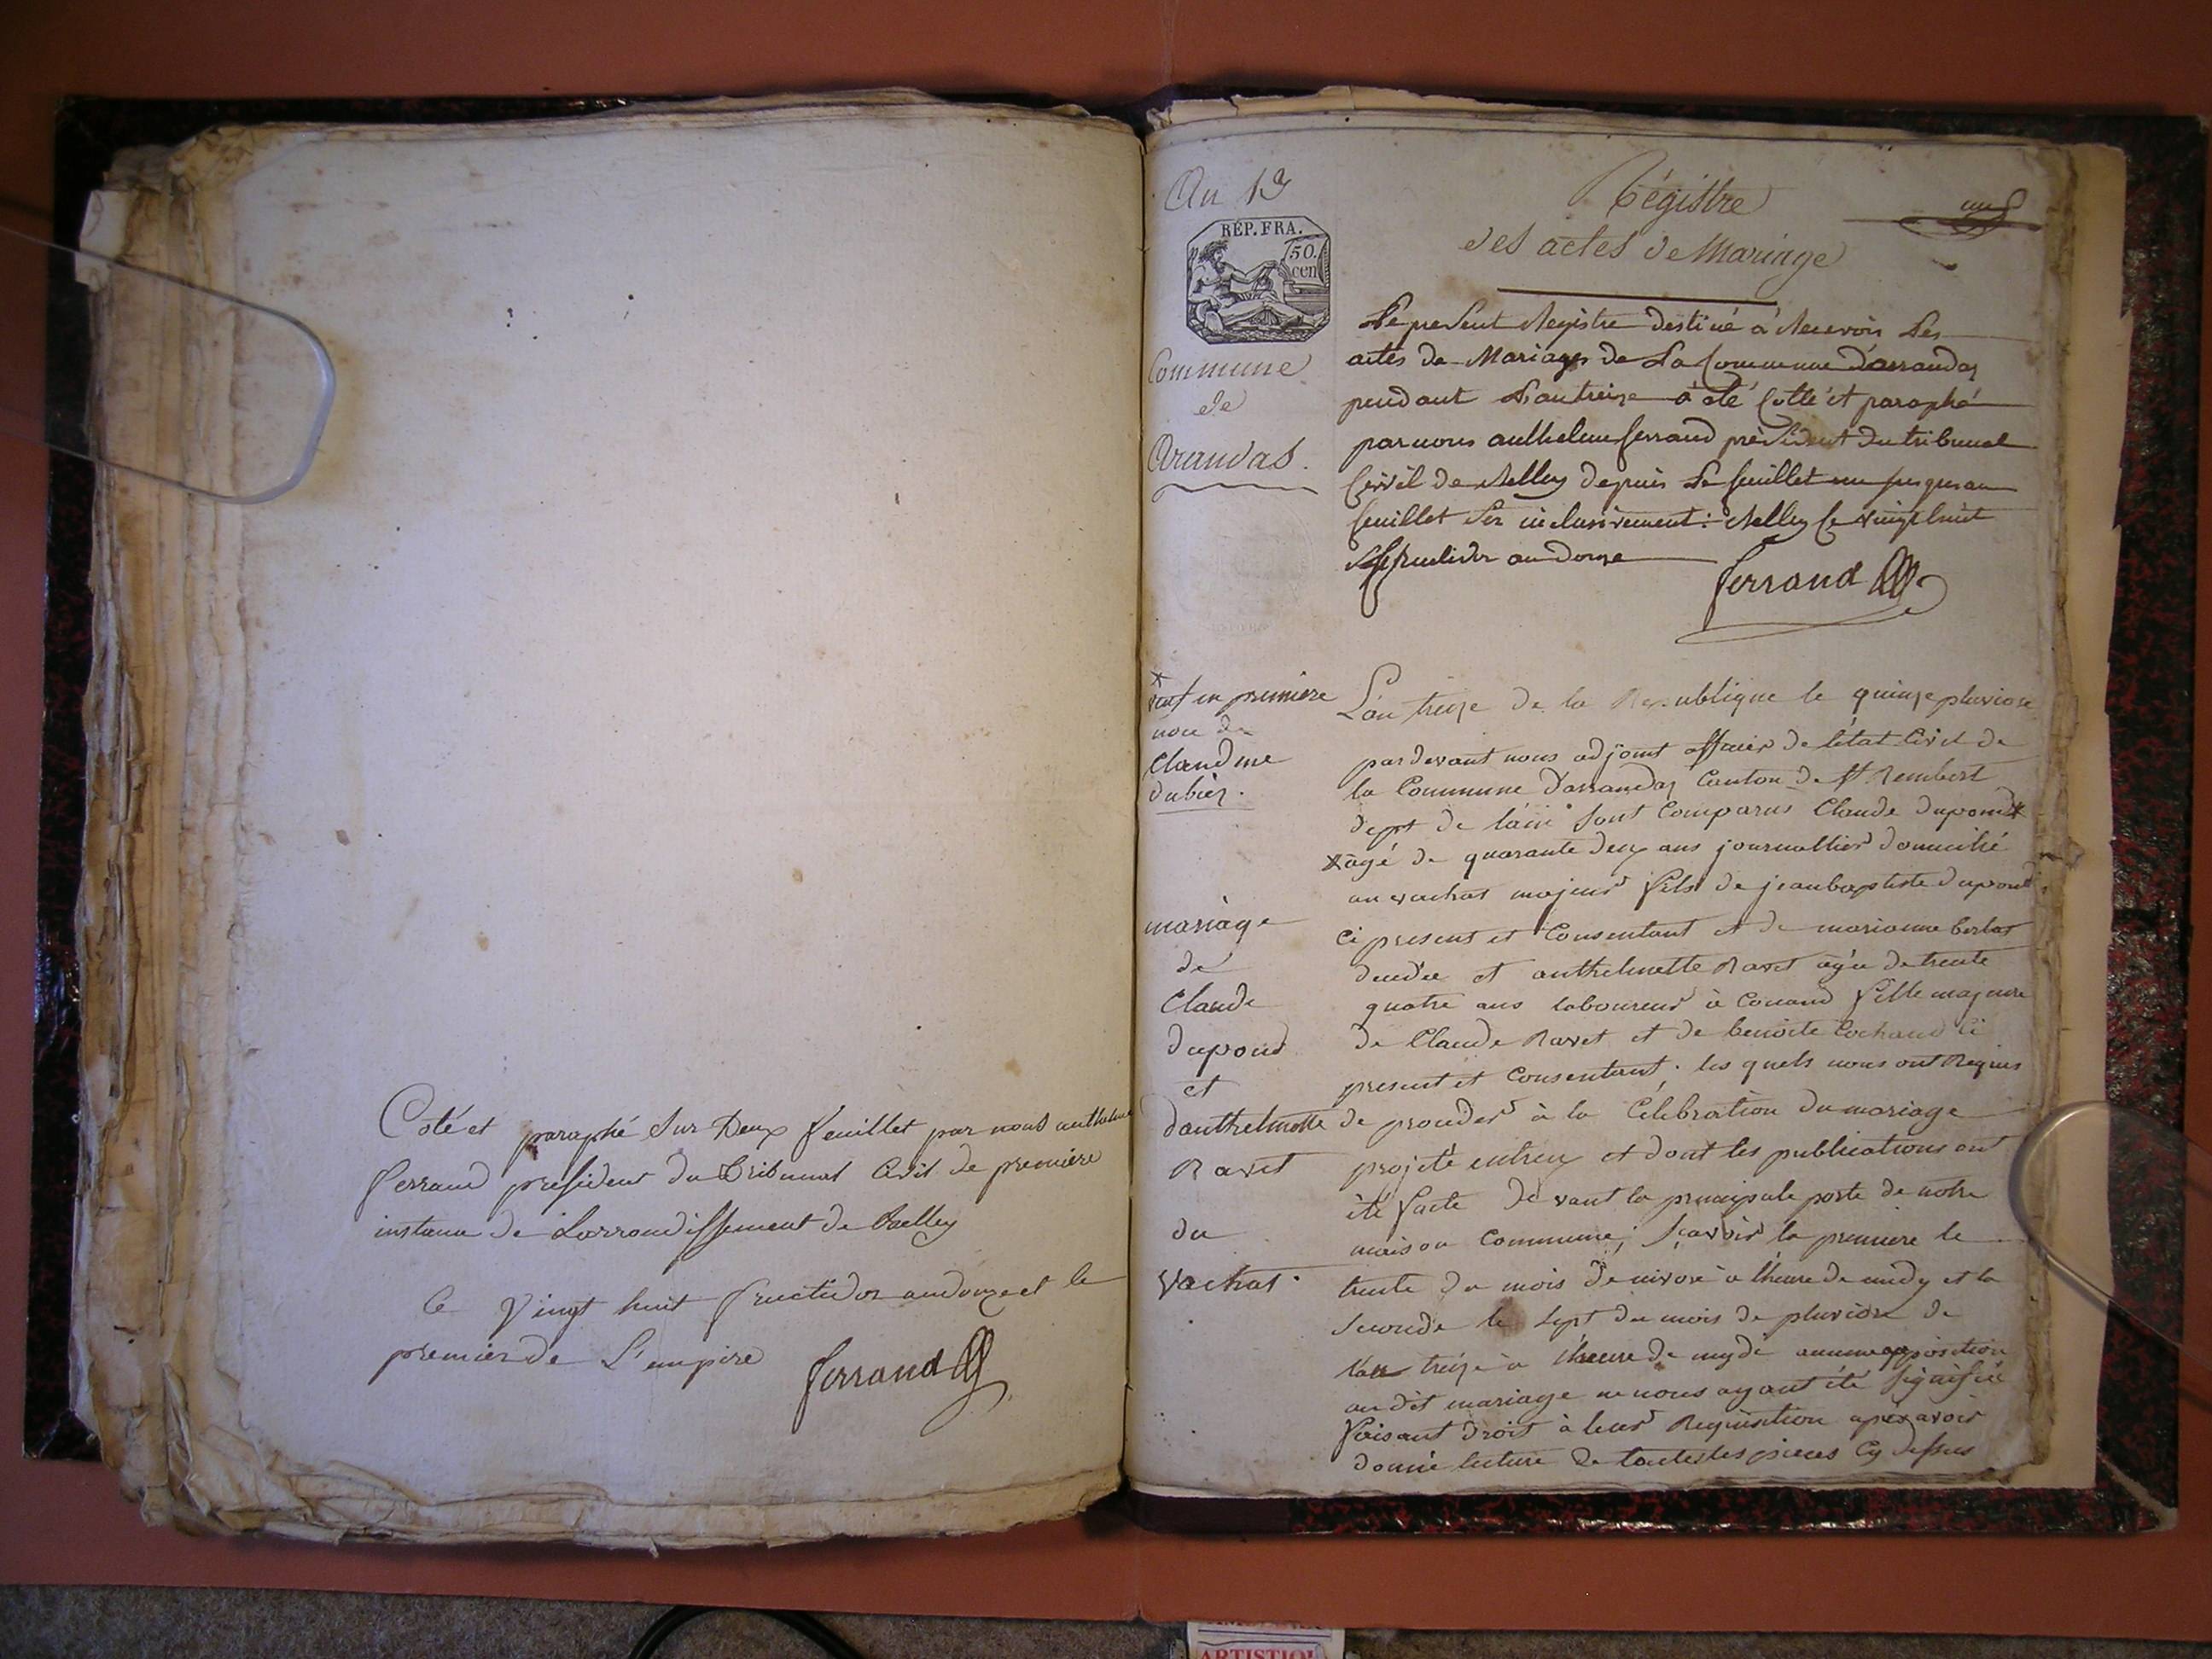 Coté et paraphé Sur Deux feuillet par nous anthelme
ferrand president du Tribunal Civil de premiere
instance de Larrondissement de Belley
le Vingt huit fructidor an douze et le
premier de L'empire ferrand
An 13
RÉP. FRA.
50.
cen
Commune
de
Arandas.
Régistre
des actes de Mariage
un
Le present Registre destiné a Recevoir Les
actes de Mariages de La Commune d'arrandas
pendant L'an treize a été Cotté et paraphé
par nous anthelme ferrand président du tribunal
Civil de Belley depuis Le feuillet un jusques au
feuillet Six inclusivement : Belley le vingt huit
fructidor an Douze
ferrand
* veuf en premiere
noce de
Claudine
dubiez.
mariage
de
Claude
dupond
et
danthelmette
Ravet
du
Vachat.
L'an treize de la Republique le quinze pluviose
par devant nous adjoint officier de l'état Civil de
la Commune d'arrandas Canton de St Rembert
dept de l'ain Sont Comparus Claude dupond *
* agé de quarante deux ans journallier domicilié
au vachat majeur fils de jean baptiste dupond
ci present et Consentant et de marianne berlat
deudée et anthelmette Ravet agée de trente
quatre ans laboureur à Conand fille majeure
de Claude Ravet et de benoite Cochand ci
present et Consentant ; les quels nous ont Requis
de proceder à la Célébration du mariage
projeté entreux et dont les publications ont
été faite devant la principale porte de notre
maison Commune, Sçavoir la premiere le
trente du mois de nivose a l'heure de midy et la
Seconde le Sept du mois de pluviose de
l'an treize a l'heure de mydi aucune opposition
au dit mariage ne nous ayant été Signifié
faisant droit à leur Requisition apres avoir
donné lecture de toutes les pieces Cy dessus
ARTISTIQU